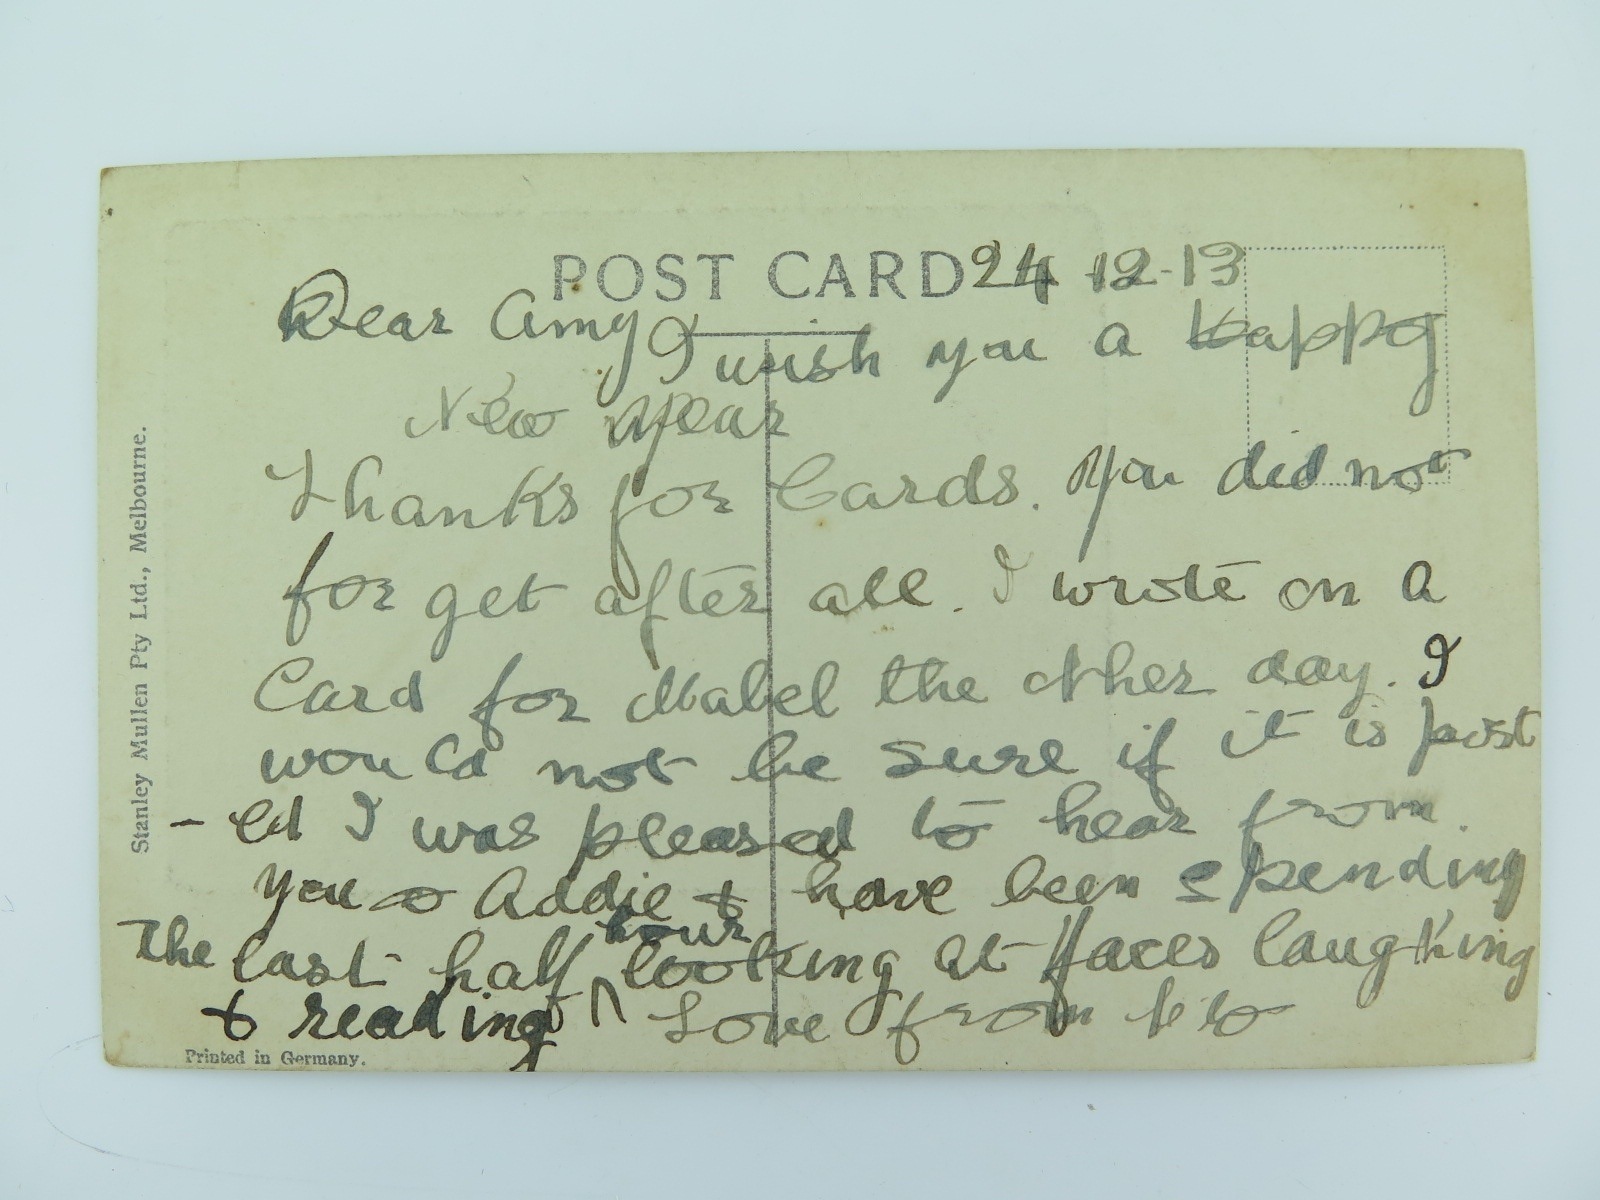 POST CARD
24-12-13
Dear Amy I wish you a happy
New year
Thanks for Cards. You did not
for get after all. I wrote on a
Card for Mabel the other day. I
would not be sure if it is post
- ed I was pleased to hear from.
you & Addie & have been spending
hour
the last half ^ looking at faces laughing
& reading Love from
Stanley Mullen Pty Ltd., Melbourne.
Printed in Germany.